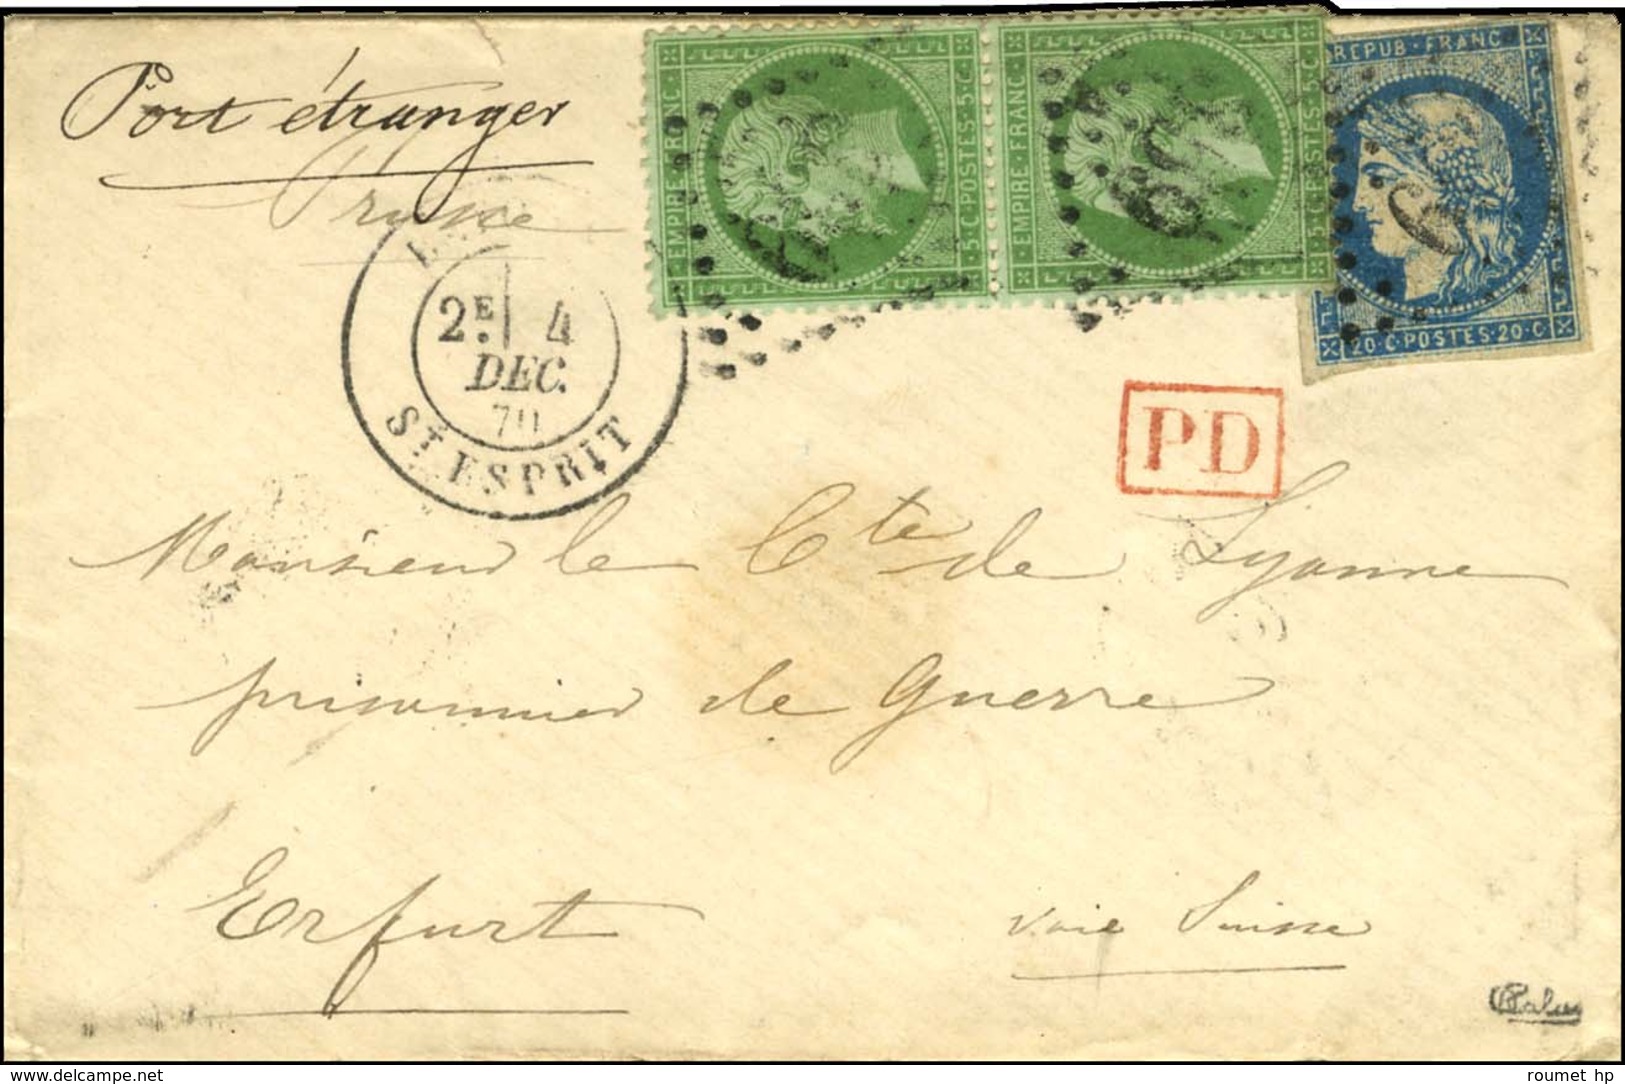 Port étranger
Prusse
EMPIRE FRANC
5 C. POSTES 5 C.
EMPIRE · FRANC
5 C. POSTES 5 C.
REPUB · FRANC
20 · C · POSTES · 20 · C
2E 4
DEC.
70
ST ESPRIT
PD
Monsieur le Cte de Lyonne
prisonnier de Guerre
Erfurt
voie Suisse
Calves
delcampe.net
roumet hp